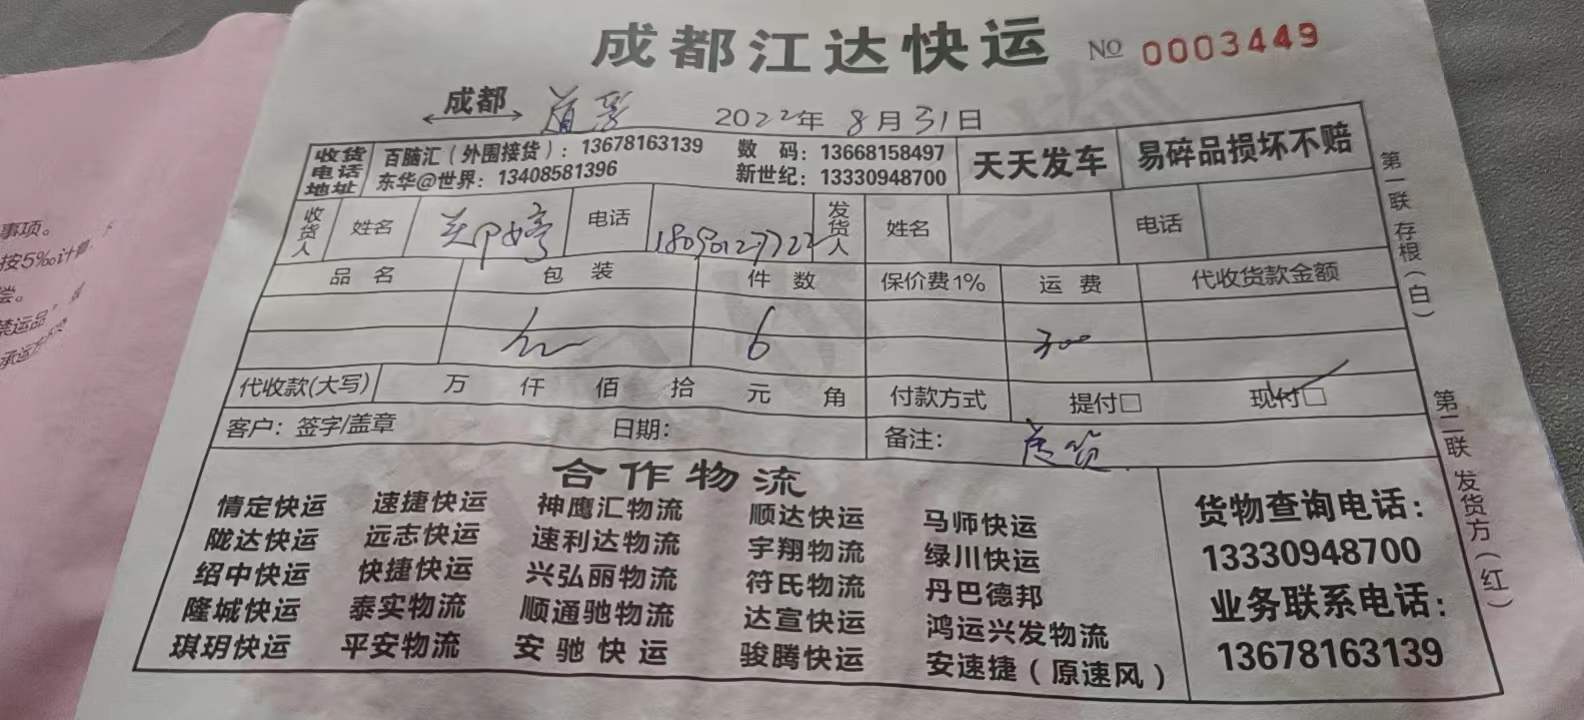 成都江达快运 No 0003449
成都 2022年8月31日
收货电话地址 百脑汇（外围接货）：13678163139 数 码：13668158497 天天发车 易碎品损坏不赔
东华@世界：13408581396 新世纪：13330948700
收货人 姓名 电话 18050127722 发货人 姓名 电话
品 名 包 装 件 数 保价费1% 运 费 代收货款金额
6 300
代收款(大写) 万 仟 佰 拾 元 角 付款方式 提付□ 现付□
客户：签字/盖章 日期： 备注：
合作物流
情定快运 速捷快运 神鹰汇物流 顺达快运 马师快运
陇达快运 远志快运 速利达物流 宇翔物流 绿川快运
绍中快运 快捷快运 兴弘丽物流 符氏物流 丹巴德邦
隆城快运 泰实物流 顺通驰物流 达宣快运 鸿运兴发物流
琪玥快运 平安物流 安驰快运 骏腾快运 安速捷（原速风）
货物查询电话：
13330948700
业务联系电话：
13678163139
第一联 存根（白）
第二联 发货方（红）
事项。
按5‰计
偿。
禁运品，
承运方